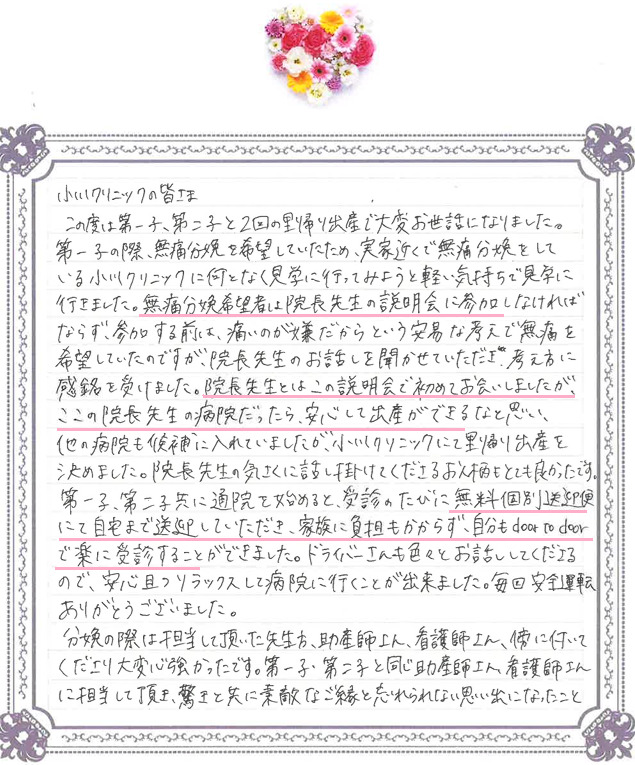 小川クリニックの皆さま
この度は第一子、第二子と2回の里帰り出産で大変お世話になりました。
第一子の際、無痛分娩を希望していたため、実家近くで無痛分娩をして
いる小川クリニックに何となく見学に行ってみようと軽い気持ちで見学に
行きました。無痛分娩希望者は院長先生の説明会に参加しなければ
ならず、参加する前は、痛いのが嫌だからという安易な考えで無痛を
希望していたのですが、院長先生のお話しを聞かせていただき、考え方に
感銘を受けました。院長先生とはこの説明会で初めてお会いしましたが、
ここの院長先生の病院だったら、安心して出産ができるなと思い、
他の病院も候補に入れていましたが、小川クリニックにて里帰り出産を
決めました。院長先生の気さくに話し掛けてくださるお人柄もとても良かったです。
第一子、第二子共に通院を始めると、受診のたびに無料個別送迎便
にて自宅まで送迎していただき、家族に負担もかからず、自分もdoor to door
で楽に受診することができました。ドライバーさんも色々とお話ししてくださる
ので、安心且つリラックスして病院に行くことが出来ました。毎回安全運転
ありがとうございました。
分娩の際は担当して頂いた先生方、助産師さん、看護師さん、傍に付いて
くださり大変心強かったです。第一子・第二子と同じ助産師さん、看護師さん
に担当して頂き、驚きと共に素敵なご縁と忘れられない思い出になったこと